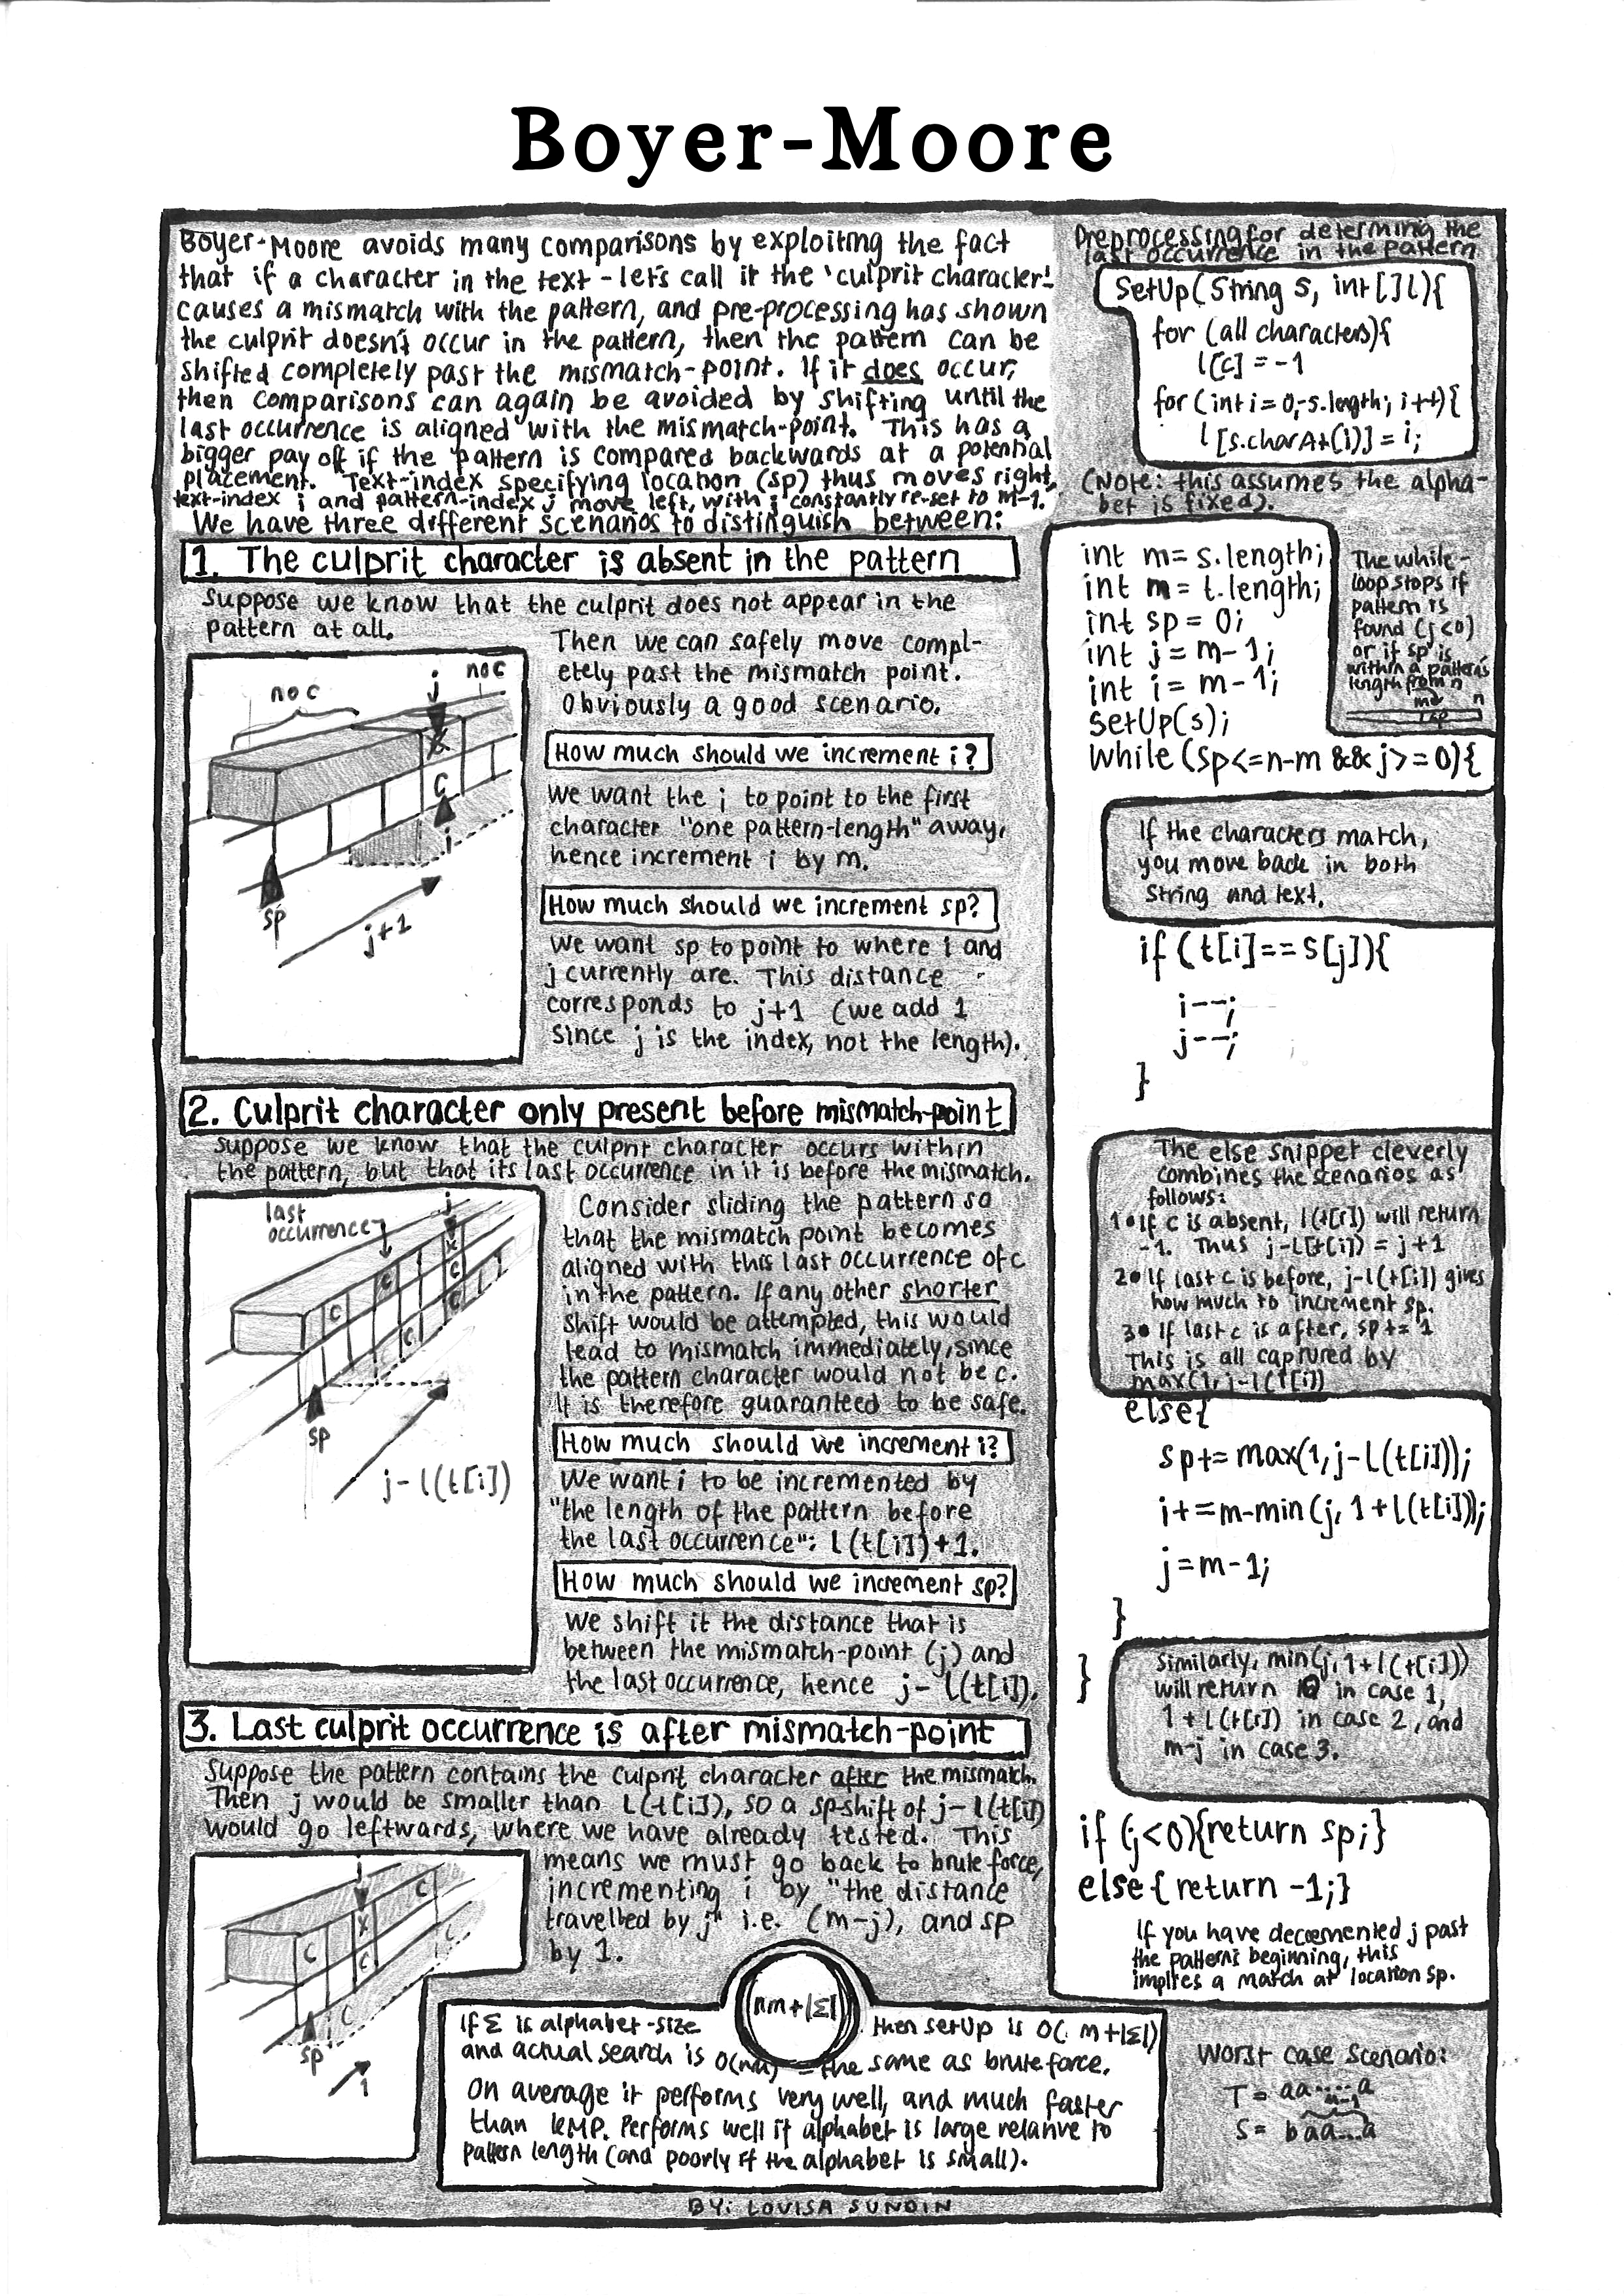 Boyer-Moore
Boyer-Moore avoids many comparisons by exploiting the fact
that if a character in the text - let's call it the 'culprit character'-
causes a mismatch with the pattern, and pre-processing has shown
the culprit doesn't occur in the pattern, then the pattern can be
shifted completely past the mismatch-point. If it does occur,
then comparisons can again be avoided by shifting until the
last occurrence is aligned with the mismatch-point. This has a
bigger pay off if the pattern is compared backwards at a potential
placement. Text-index specifying location (sp) thus moves right,
text-index i and pattern-index j move left, with j constantly re-set to m-1.
We have three different scenarios to distinguish between:
1. The culprit character is absent in the pattern
Suppose we know that the culprit does not appear in the
pattern at all.
Then we can safely move compl-
etely past the mismatch point.
Obviously a good scenario.
no c
j
no c
x
c
i
sp
j+1
How much should we increment i?
We want the i to point to the first
character "one pattern-length" away,
hence increment i by m.
How much should we increment sp?
We want sp to point to where i and
j currently are. This distance
corresponds to j+1 (we add 1
since j is the index, not the length).
2. Culprit character only present before mismatch-point
Suppose we know that the culprit character occurs within
the pattern, but that its last occurrence in it is before the mismatch.
last
occurrence
j
x
c
c
c
c
c
sp
j-l(t[i])
Consider sliding the pattern so
that the mismatch point becomes
aligned with this last occurrence of c
in the pattern. If any other shorter
shift would be attempted, this would
lead to mismatch immediately, since
the pattern character would not be c.
It is therefore guaranteed to be safe.
How much should we increment i?
We want i to be incremented by
"the length of the pattern before
the last occurrence": l(t[i])+1.
How much should we increment sp?
We shift it the distance that is
between the mismatch-point (j) and
the last occurrence, hence j-l(t[i]).
3. Last culprit occurrence is after mismatch-point
Suppose the pattern contains the culprit character after the mismatch.
Then j would be smaller than l(t[i]), so a sp-shift of j-l(t[i])
would go leftwards, where we have already tested. This
means we must go back to brute force,
incrementing i by "the distance
travelled by j" i.e. (m-j), and sp
by 1.
j
c
x
c
c
c
i
c
sp
1
nm+|Σ|
If Σ is alphabet-size then setUp is O( m+|Σ|)
and actual search is O(nm) - the same as brute force.
On average it performs very well, and much faster
than KMP. Performs well if alphabet is large relative to
pattern length (and poorly if the alphabet is small).
Preprocessing for determing the
last occurrence in the pattern
SetUp(String s, int[]l){
for (all characters){
l[c] = -1
for (int i = 0,-s.length; i++){
l[s.charAt(i)] = i;
(Note: this assumes the alpha-
bet is fixed).
int m = s.length;
int m = t.length;
int sp = 0;
int j = m-1;
int i = m-1;
SetUp(s);
while (sp<=n-m && j>=0){
The while-
loop stops if
pattern is
found (j<0)
or if sp is
within a pattern's
length from n
n
If the characters match,
you move back in both
String and text.
if (t[i]==s[j]){
i--;
j--;
}
The else snippet cleverly
combines the scenarios as
follows:
1• If c is absent, l(t[i]) will return
-1. Thus j-l(t[i]) = j+1
2• If last c is before, j-l(t[i]) gives
how much to increment sp.
3• If last c is after, sp+=1
This is all captured by
max(1,j-l(t[i])
else{
sp+= max(1,j-l(t[i]));
i+=m-min(j, 1+l(t[i]));
j=m-1;
}
}
Similarly, min(j,1+l(t[i]))
will return 0 in case 1,
1+l(t[i]) in case 2, and
m-j in case 3.
if (j<0){return sp;}
else{return -1;}
If you have decremented j past
the pattern's beginning, this
implies a match at location sp.
Worst case scenario:
T = aa.....a
m-1
S = baa...a
BY: LOVISA SUNDIN